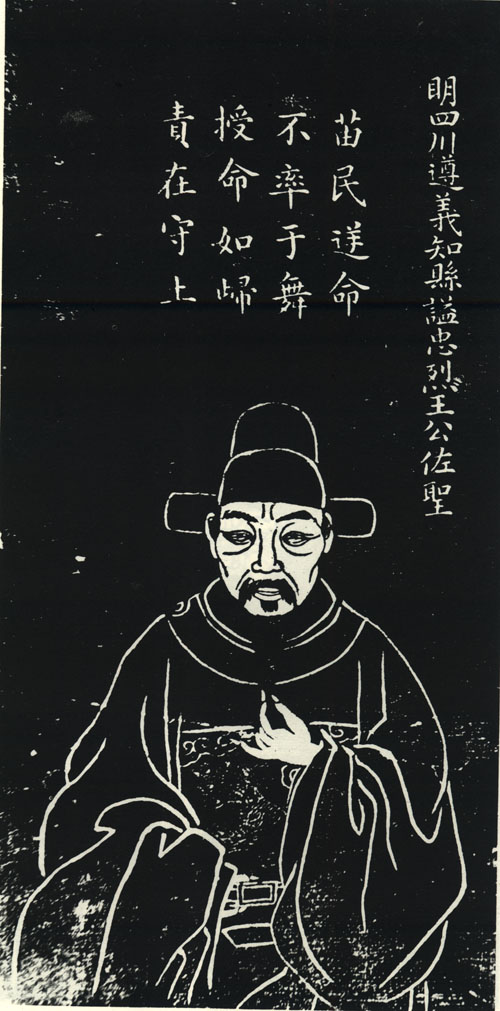 明四川遵義知縣謚忠烈王公佐聖
苗民逆命
不率于舞
授命如㱕
責在守土